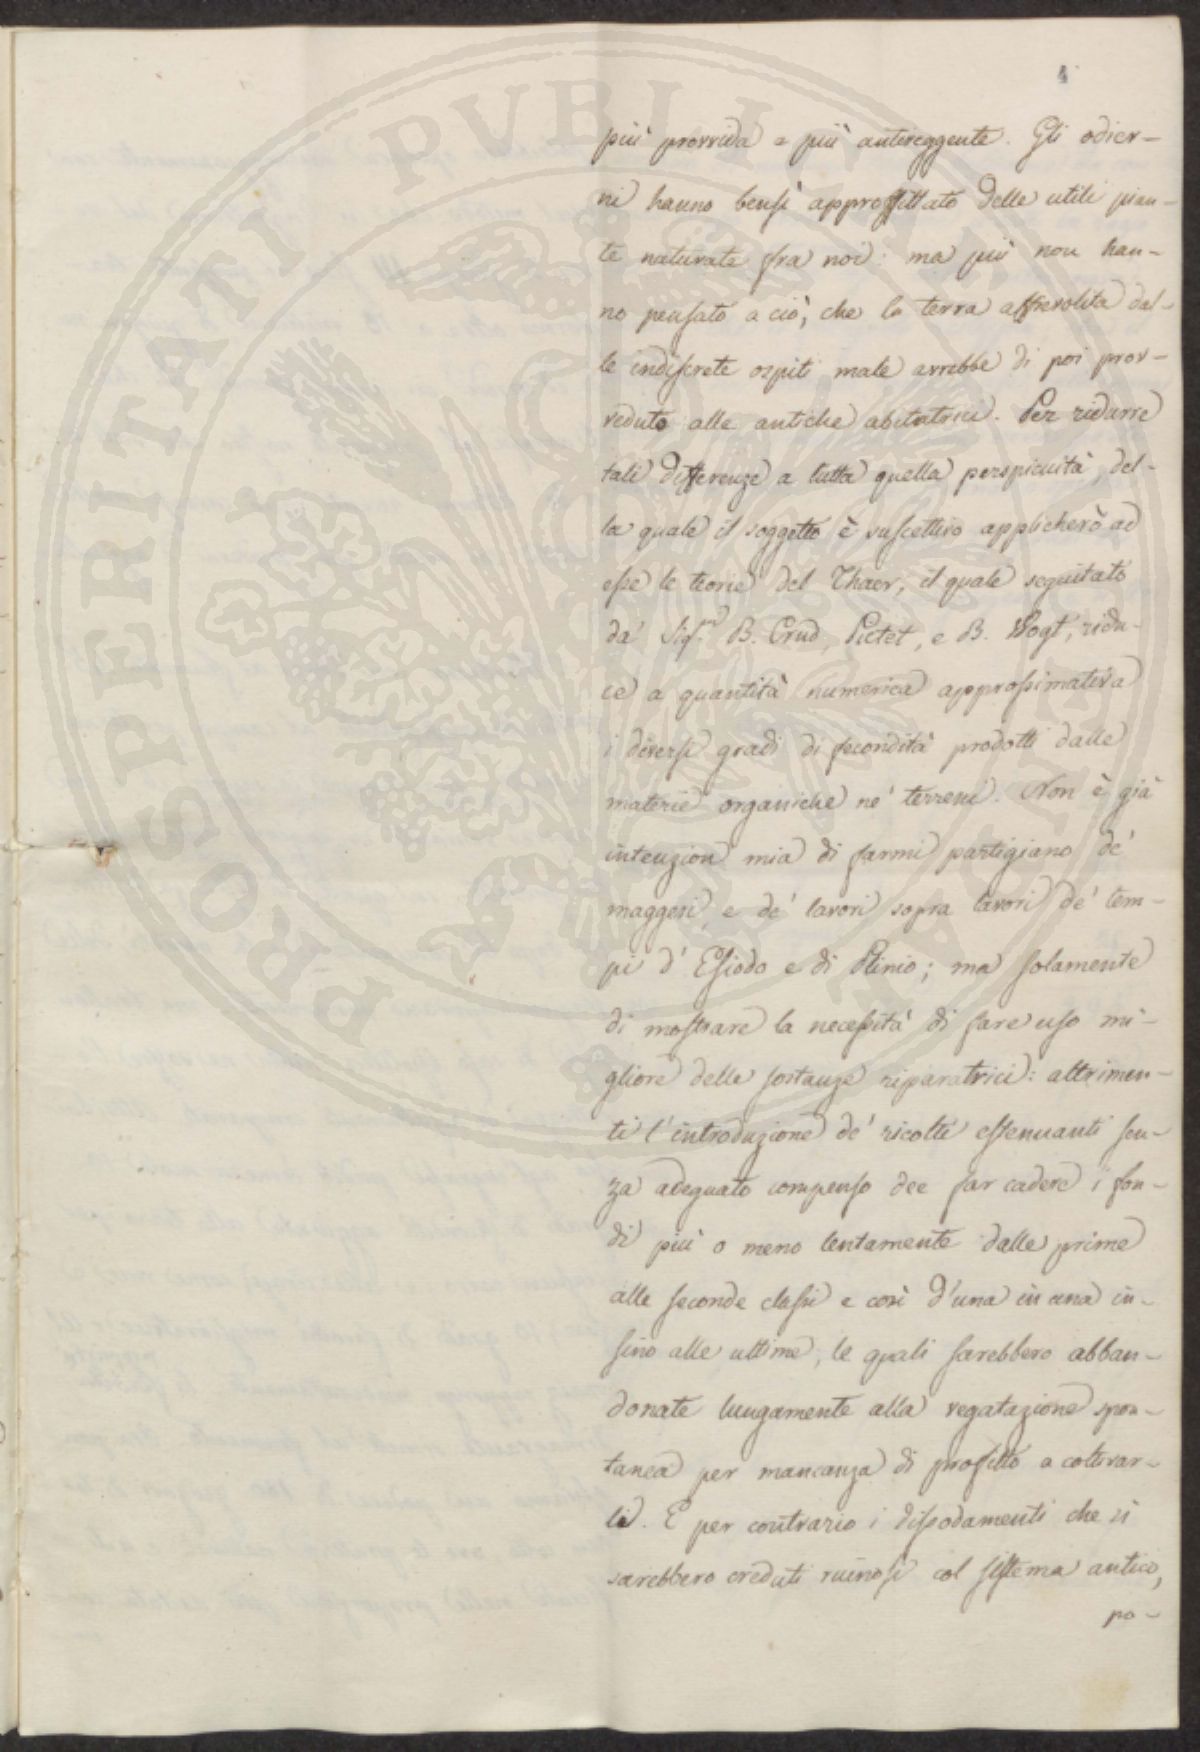 4
più provvida e più antiveggente. Gli odier-
ni hanno bensì approfittato delle utili pian-
te naturate fra noi: ma più non han-
no pensato a ciò, che la terra affievolita dal-
le indiscrete ospiti male avrebbe di poi prov-
veduto alle antiche abitatrici. Per ridurre
tali differenze a tutta quella perspicuità, del-
la quale il soggetto è suscettivo applicherò ad
esse le teorie del Thaer, il quale seguitato
da' Sig.ri B. Crud, Pictet, e B. Vogt, ridu-
ce a quantità numerica approssimativa
i diversi gradi di fecondità prodotti dalle
materie organiche ne' terreni. Non è già
intenzion mia di farmi partigiano de'
maggesi, e de' lavori sopra lavori de' tem-
pi d' Esiodo e di Plinio; ma solamente
di mostrare la necessità di fare uso mi-
gliore delle sostanze riparatrici: altrimen-
ti l' introduzione de' ricolti estenuanti sen-
za adeguato compenso dee far cadere i fon-
di più o meno lentamente dalle prime
alle seconde classi e così d'una in una in-
sino alle ultime, le quali sarebbero abban-
donate lungamente alla vegatazione spon-
tanea per mancanza di profitto a coltivar-
li. E per contrario i dissodamenti che si
sarebbero creduti ruinosi col sistema antico,
po-
PROSPERITATI PUBLICAE